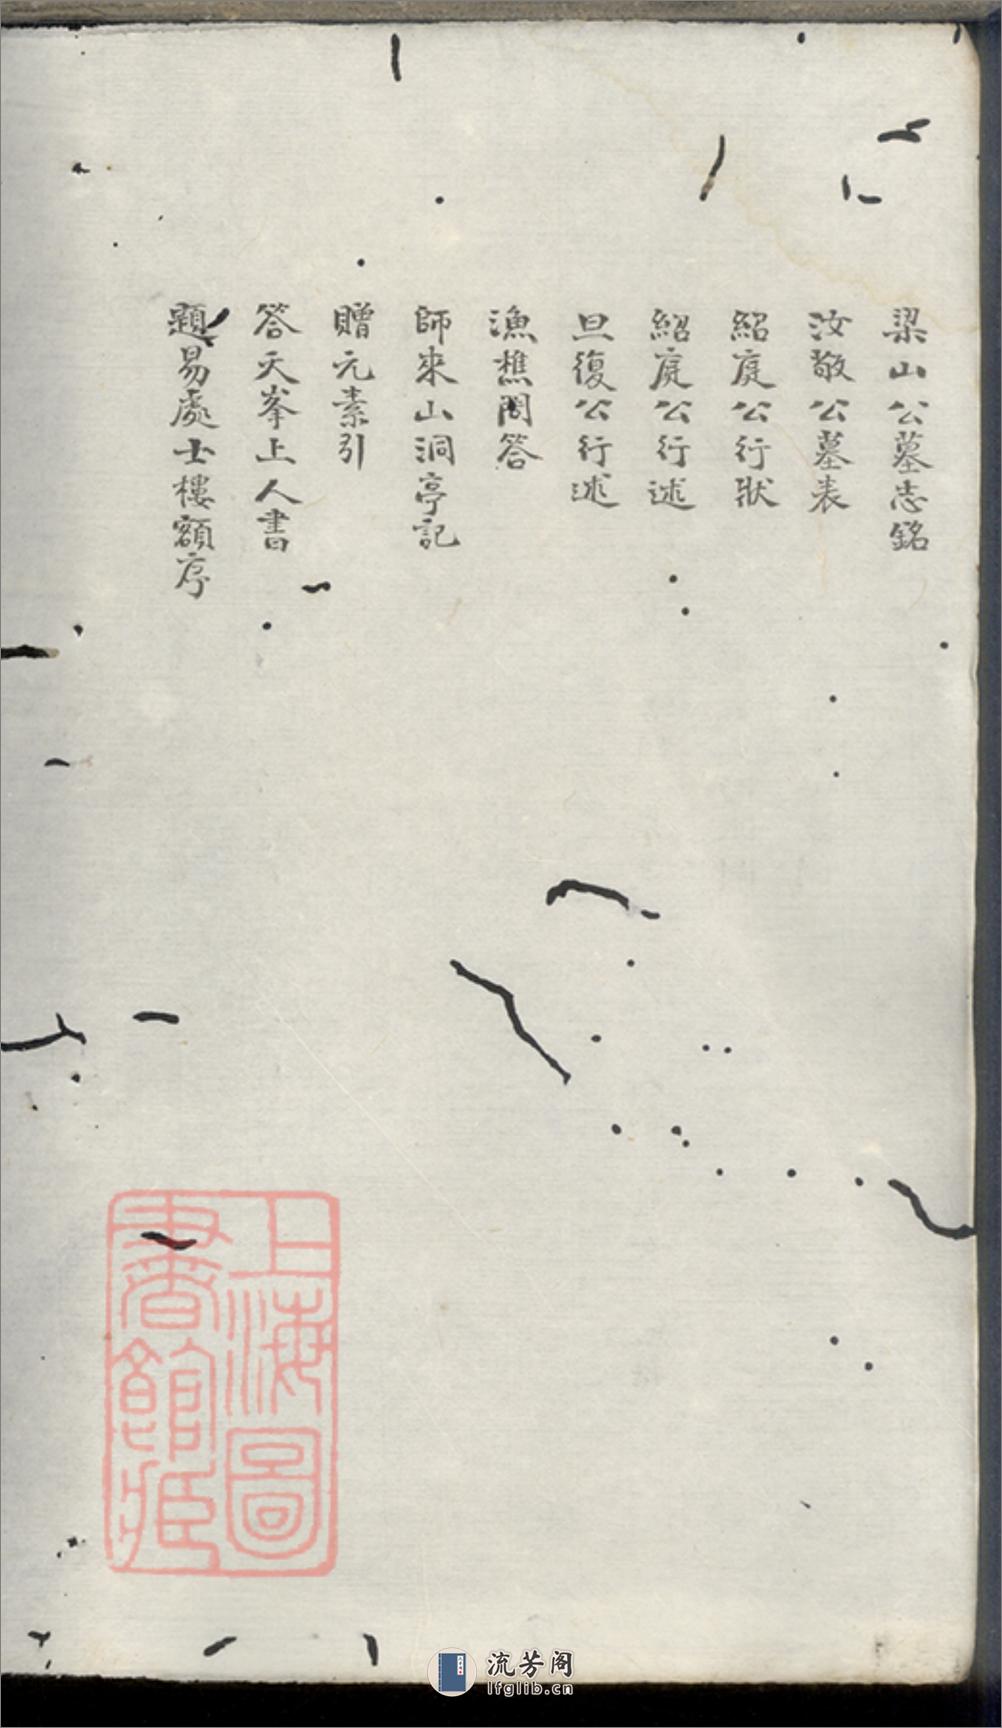 梁山公墓志銘
汝敬公墓表
紹庭公行狀
紹庭公行述
旦復公行述
漁樵問答
師來山洞亭記
贈元素引
答天峯上人書
題易處士樓額序
上海圖書館藏
流芳阁
lfglib.cn